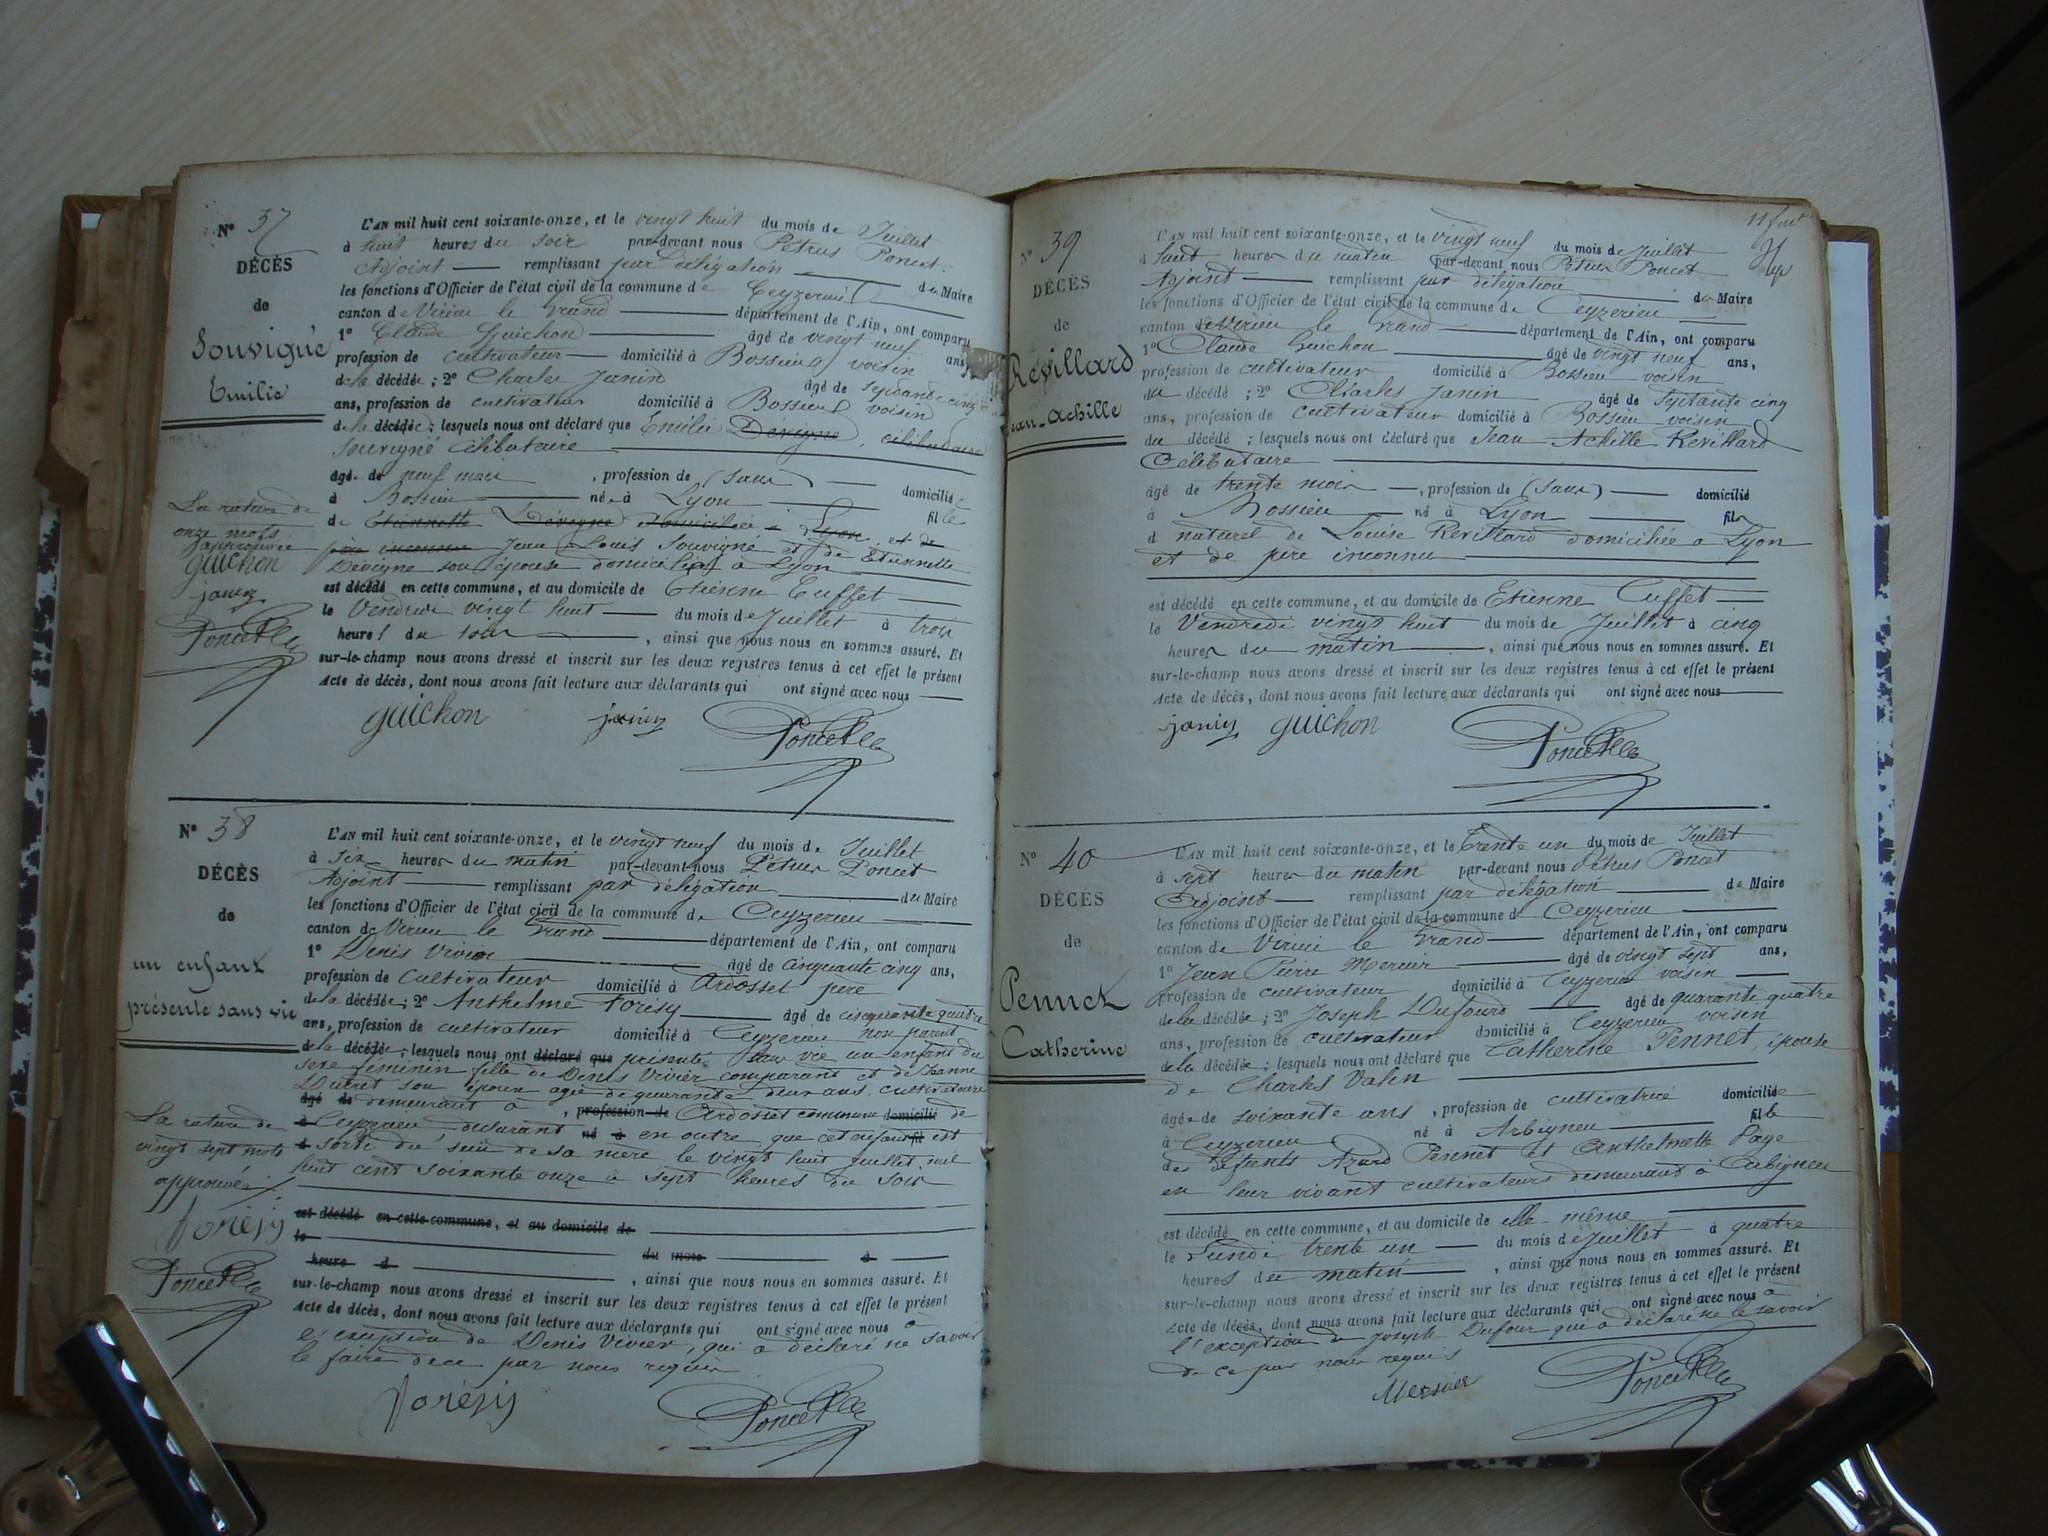 N° 37
DÉCÈS
de
Souvigné
Emilie
L'AN mil huit cent soixante-onze, et le vingt huit du mois de Juillet
à huit heures du soir par-devant nous Pétrus Poncet
Adjoint remplissant par délégation du Maire
les fonctions d'Officier de l'état civil de la commune de Ceyzerieu
canton de Virieu le Grand département de l'Ain, ont comparu
1° Claude Guichon âgé de vingt neuf ans,
profession de cultivateur domicilié à Bossieu voisin
de la décédée ; 2° Charles Janin âgé de septante cinq
ans, profession de cultivateur domicilié à Bossieu voisin
de la décédée ; lesquels nous ont déclaré que Emilie Devigne, célibataire
Souvigné célibataire
âgée de neuf mois, profession de (sans) domiciliée
à Bossieu née à Lyon fille
de Etiennette Devigne domiciliée à Lyon et de
père inconnu Jean Louis Souvigné et de Etiennette
Devigne son épouse domiciliés à Lyon
est décédé en cette commune, et au domicile de Etienne Cuffet
le Vendredi vingt huit du mois de Juillet à trois
heures du soir, ainsi que nous nous en sommes assuré. Et
sur-le-champ nous avons dressé et inscrit sur les deux registres tenus à cet effet le présent
Acte de décès, dont nous avons fait lecture aux déclarants qui ont signé avec nous
guichon janin Poncet
La rature de
onze mots
approuvée
guichon
janin
Poncet
N° 38
DÉCÈS
de
un enfant
présenté sans vie
L'AN mil huit cent soixante-onze, et le vingt neuf du mois de Juillet
à six heures du matin par-devant nous Pétrus Poncet
Adjoint remplissant par délégation du Maire
les fonctions d'Officier de l'état civil de la commune de Ceyzerieu
canton de Virieu le Grand département de l'Ain, ont comparu
1° Denis Vivier âgé de cinquante cinq ans,
profession de cultivateur domicilié à Ardosset père
de la décédée ; 2° Anthelme Forésy âgé de cinquante quatre
ans, profession de cultivateur domicilié à Ceyzerieu non parent
de la décédée ; lesquels nous ont déclaré que présenté sans vie un enfant du
sexe féminin fille de Denis Vivier comparant et de Jeanne
Ducret son épouse agée de quarante deux ans cultivateure
âgé de demeurant à, profession de Ardosset commune domicilié de
à Ceyzerieu déclarant né à en outre que cet enfant fil est
d sorti du sein de sa mère le vingt huit juillet mil
huit cent soixante onze à sept heures du soir
est décédé en cette commune, et au domicile de
le
heure d du mois à
, ainsi que nous nous en sommes assuré. Et
sur-le-champ nous avons dressé et inscrit sur les deux registres tenus à cet effet le présent
Acte de décès, dont nous avons fait lecture aux déclarants qui ont signé avec nous à
l'exception de Denis Vivier, qui a déclaré ne savoir
le faire de ce par nous requis
forésy Poncet
La rature de
vingt sept mots
approuvée
forésy
Poncet
11 fut
N° 39
DÉCÈS
de
Révillard
Jean-Achille
L'AN mil huit cent soixante-onze, et le vingt neuf du mois de Juillet
à huit heures du matin par-devant nous Pétrus Poncet
Adjoint remplissant par délégation du Maire
les fonctions d'Officier de l'état civil de la commune de Ceyzerieu
canton de Virieu le Grand département de l'Ain, ont comparu
1° Claude Guichon âgé de vingt neuf ans,
profession de cultivateur domicilié à Bossieu voisin
du décédé ; 2° Charles Janin âgé de septante cinq
ans, profession de cultivateur domicilié à Bossieu voisin
du décédé ; lesquels nous ont déclaré que Jean Achille Revillard
Célibataire
âgé de trente mois, profession de (sans) domicilié
à Bossieu né à Lyon fils
d naturel de Louise Revillard domiciliée à Lyon
et de père inconnu
est décédé en cette commune, et au domicile de Etienne Cuffet
le Vendredi vingt huit du mois de Juillet à cinq
heures du matin, ainsi que nous nous en sommes assuré. Et
sur-le-champ nous avons dressé et inscrit sur les deux registres tenus à cet effet le présent
Acte de décès, dont nous avons fait lecture aux déclarants qui ont signé avec nous
janin guichon Poncet
N° 40
DÉCÈS
de
Pennet
Catherine
L'AN mil huit cent soixante-onze, et le trente un du mois de Juillet
à sept heures du matin par-devant nous Pétrus Poncet
Adjoint remplissant par délégation du Maire
les fonctions d'Officier de l'état civil de la commune de Ceyzerieu
canton de Virieu le Grand département de l'Ain, ont comparu
1° Jean Pierre Mercier âgé de vingt sept ans,
profession de cultivateur domicilié à Ceyzerieu voisin
de la décédée ; 2° Joseph Dufour âgé de quarante quatre
ans, profession de cultivateur domicilié à Ceyzerieu voisin
de la décédée ; lesquels nous ont déclaré que Catherine Pennet, épouse
de Charles Valin
âgée de soixante ans, profession de cultivatrice domiciliée
à Ceyzerieu né à Arbignieu fille
des défunts Azard Pennet et Anthelmette Page
en leur vivant cultivateurs demeurant à Arbignieu
est décédé en cette commune, et au domicile de elle-même
le Lundi trente un du mois de Juillet à quatre
heures du matin, ainsi que nous nous en sommes assuré. Et
sur-le-champ nous avons dressé et inscrit sur les deux registres tenus à cet effet le présent
Acte de décès, dont nous avons fait lecture aux déclarants qui ont signé avec nous à
l'exception de Joseph Dufour qui a déclaré ne le savoir
de ce par nous requis
Mercier Poncet